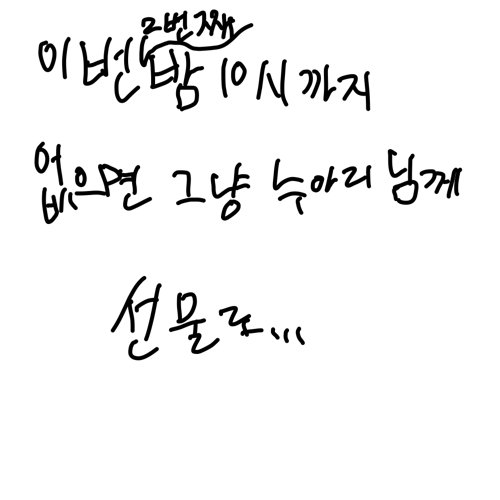 2번째
이번 밤 10시까지
없으면 그냥 수아리 님께
선물로...